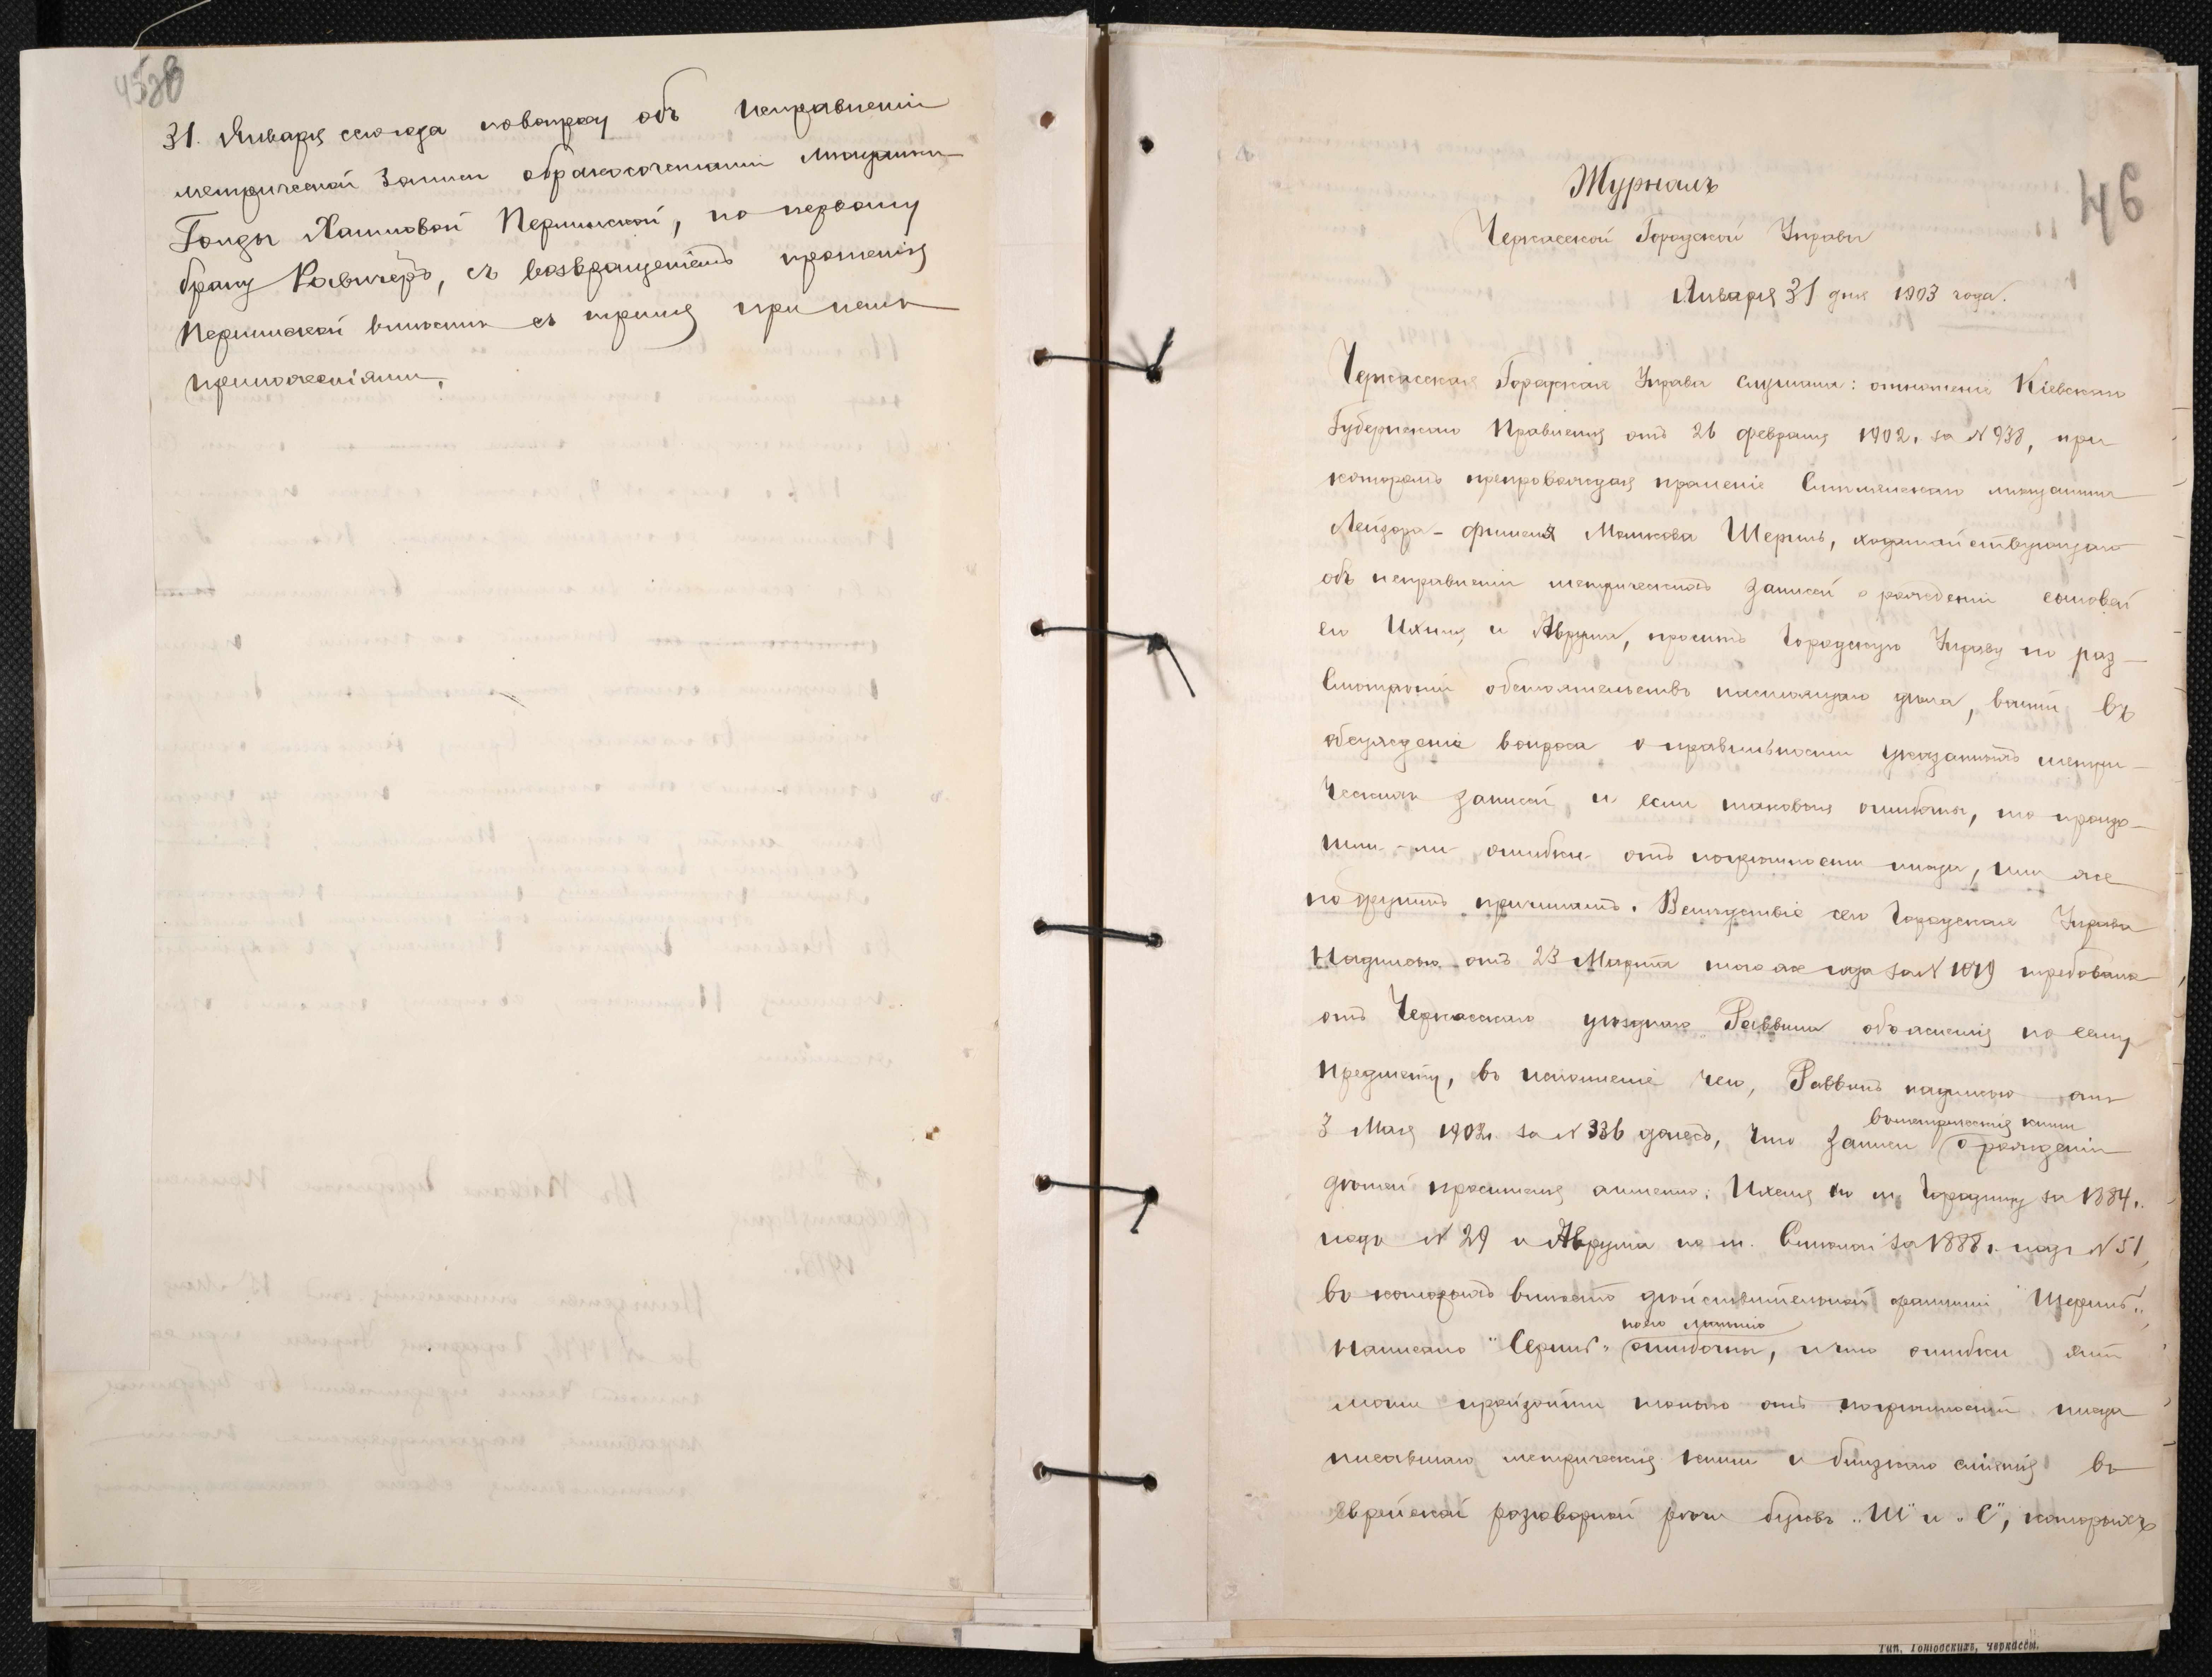 31. Января сего года по вопросу объ исправленіи
метрической записи о бракосочетаніи мѣщанки
Гольды Хаимовой Першиской, по первому
браку Равичеръ, съ возвращеніемъ прошенія
Першиской вмѣстѣ съ тремя при немъ
приложеніями.
46
Журналъ
Черкасской Городской Управы
Января 31 дня 1903 года.
Черкасская Городская Управа слушала: отношеніе Кіевскаго
Губернскаго Правленія отъ 26 февраля 1902 г. за № 938, при
которомъ препровождая прошеніе Смѣлянскаго мѣщанина
Лейзора-Фишеля Мошкова Шерисъ, ходатайствующаго
объ исправленіи метрическихъ записей о рожденіи сыновей
его Ихиля и Аврума, проситъ Городскую Управу по раз-
смотрѣніи обстоятельствъ настоящаго дѣла, войти въ
обсужденіе вопроса о правильности указанныхъ метри-
ческихъ записей, и если таковыя ошибочны, то произо-
шли-ли ошибки отъ погрѣшности писца, или же
по другимъ причинамъ. Вслѣдствіе сего Городская Управа
надписью отъ 23 Марта того же года за № 1019 требовала
отъ Черкасскаго уѣзднаго Раввина объясненія по сему
предмету, въ исполненіе чего, Раввинъ надписью отъ
3 Мая 1902 г. за № 336 донесъ, что записи о рожденіи
въ метрическія книги
дѣтей просителя а именно: Ихеля по м. Городищу за 1884 г.
подъ № 29 и Аврума по м. Смѣлой за 1888 г. подъ № 51,
въ которыхъ вмѣсто дѣйствительной фамиліи "Шерисъ"
написано "Серисъ" ошибочны, и что ошибки эти
по его мнѣнію
могли произойти только отъ погрѣшности писца
писавшаго метрическія книги и близкаго слиянія въ
еврейской разговорной рѣчи буквъ "Ш" и "С", которыхъ
Тип. Колодскихъ, Черкассы.